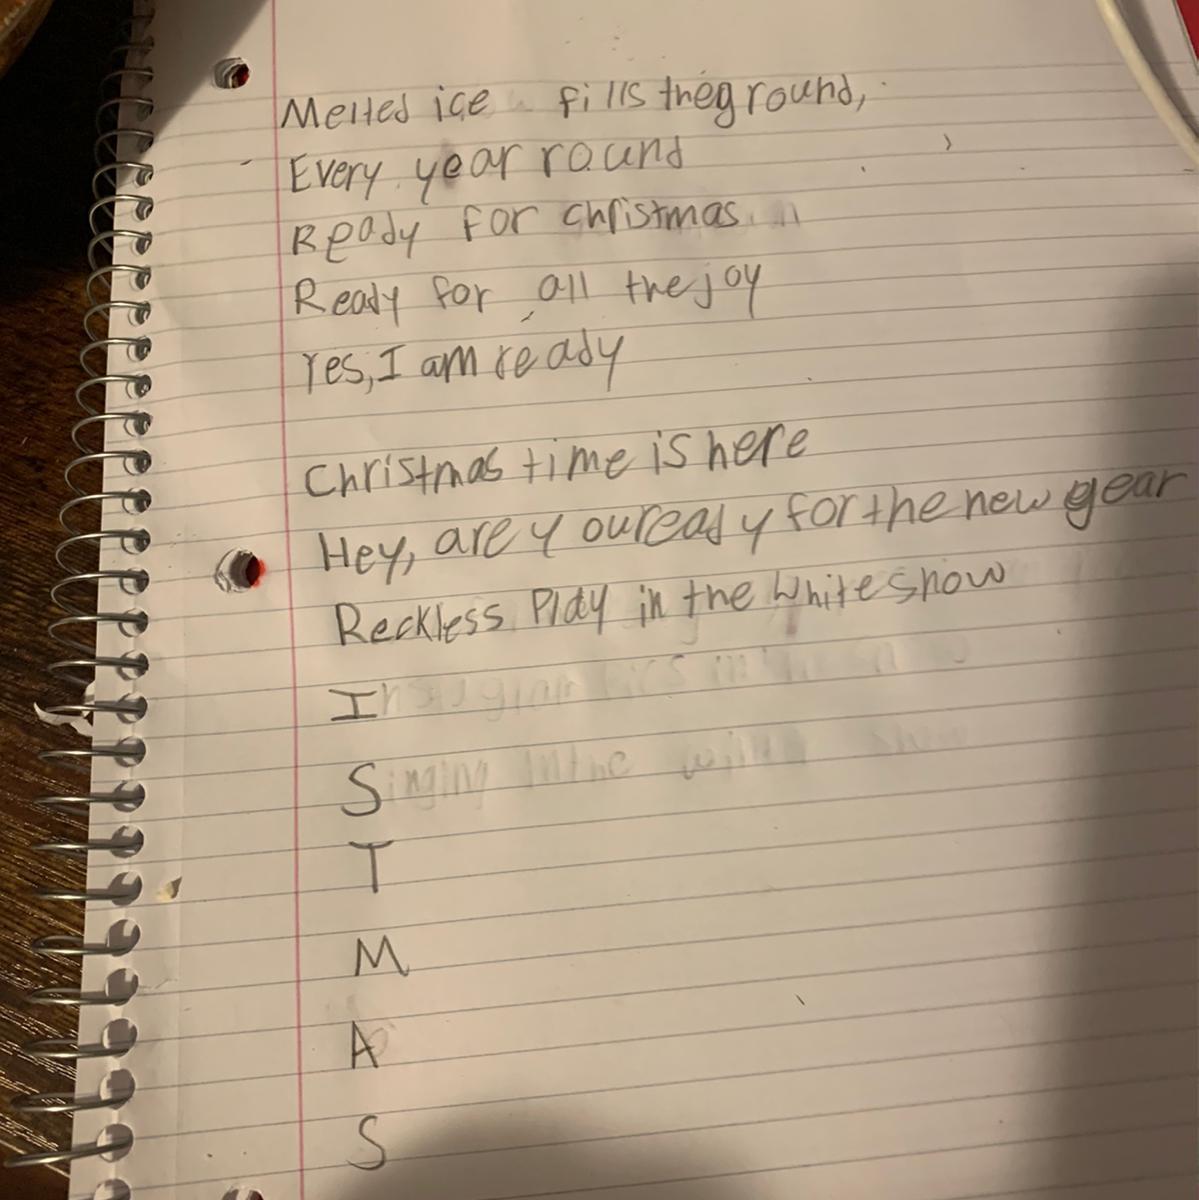 Melted ice fills the ground,
Every year round
Ready for christmas
Ready for all the joy
Yes, I am ready
Christmas time is here
Hey, are you ready for the new year
Reckless Play in the white snow
I
Singing in the
T
M
A
S